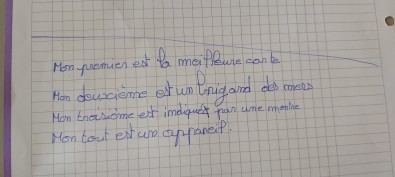 Mon premier est la meilleure carte
Mon deuxième est un brigand des mers
Mon troisième est indiquée par une montre
Mon tout est un appareil.